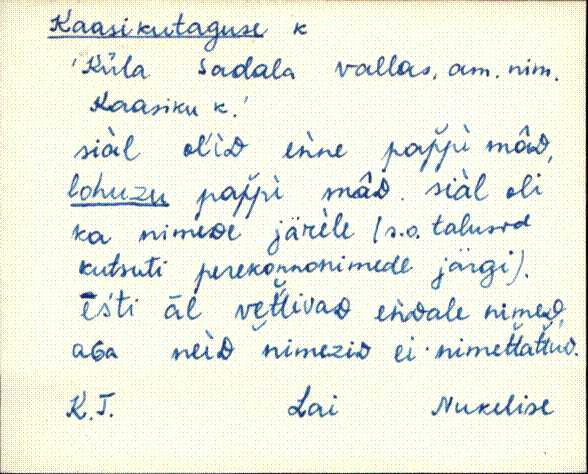 Kaasikutaguse k
'Küla Sadala vallas, am. nim.
Kaasiku k.'
siàl ol'iD enne pappi mâD,
lohuzu pappi mâD. siàl oli
ka nimeDe järèle (s.o. talusid
kutsuti perekonnanimede järgi).
ēs'ti āl veťtivaD eńDale nimeD,
aGa neiD nimeziD ei nimeťtaťtuD.
K.T. Lai Nukelise